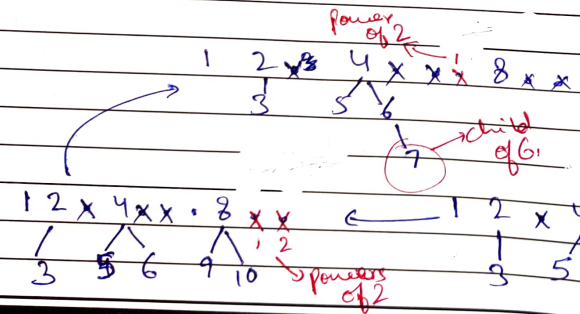 power
of 2
1
1 2 x 3 4 x x x 8 x x
3 5 6
child
of 6.
7
1 2 x 4 x x . 8 x x
1 2 x
1 2
3 5 6 9 10
3 5
powers
of 2